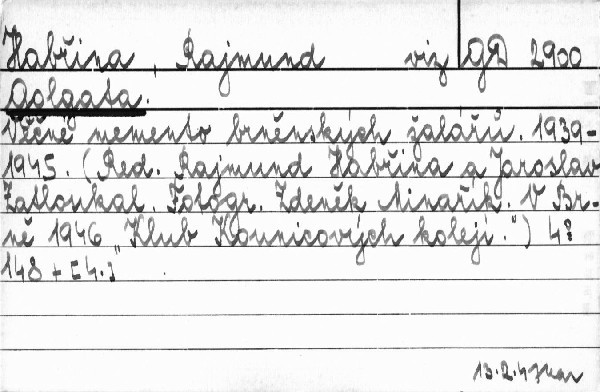 Habřina, Rajmund viz GD 2900
Golgata.
Věčné memento brněnských žalářů. 1939-
1945. (Red. Rajmund Habřina a Jaroslav
Zatloukal. Fotogr. Zdeněk Minařík. V Br-
ně 1946 "Klub Kounicových kolejí.") 4°
148 + [4.]
13.2.47